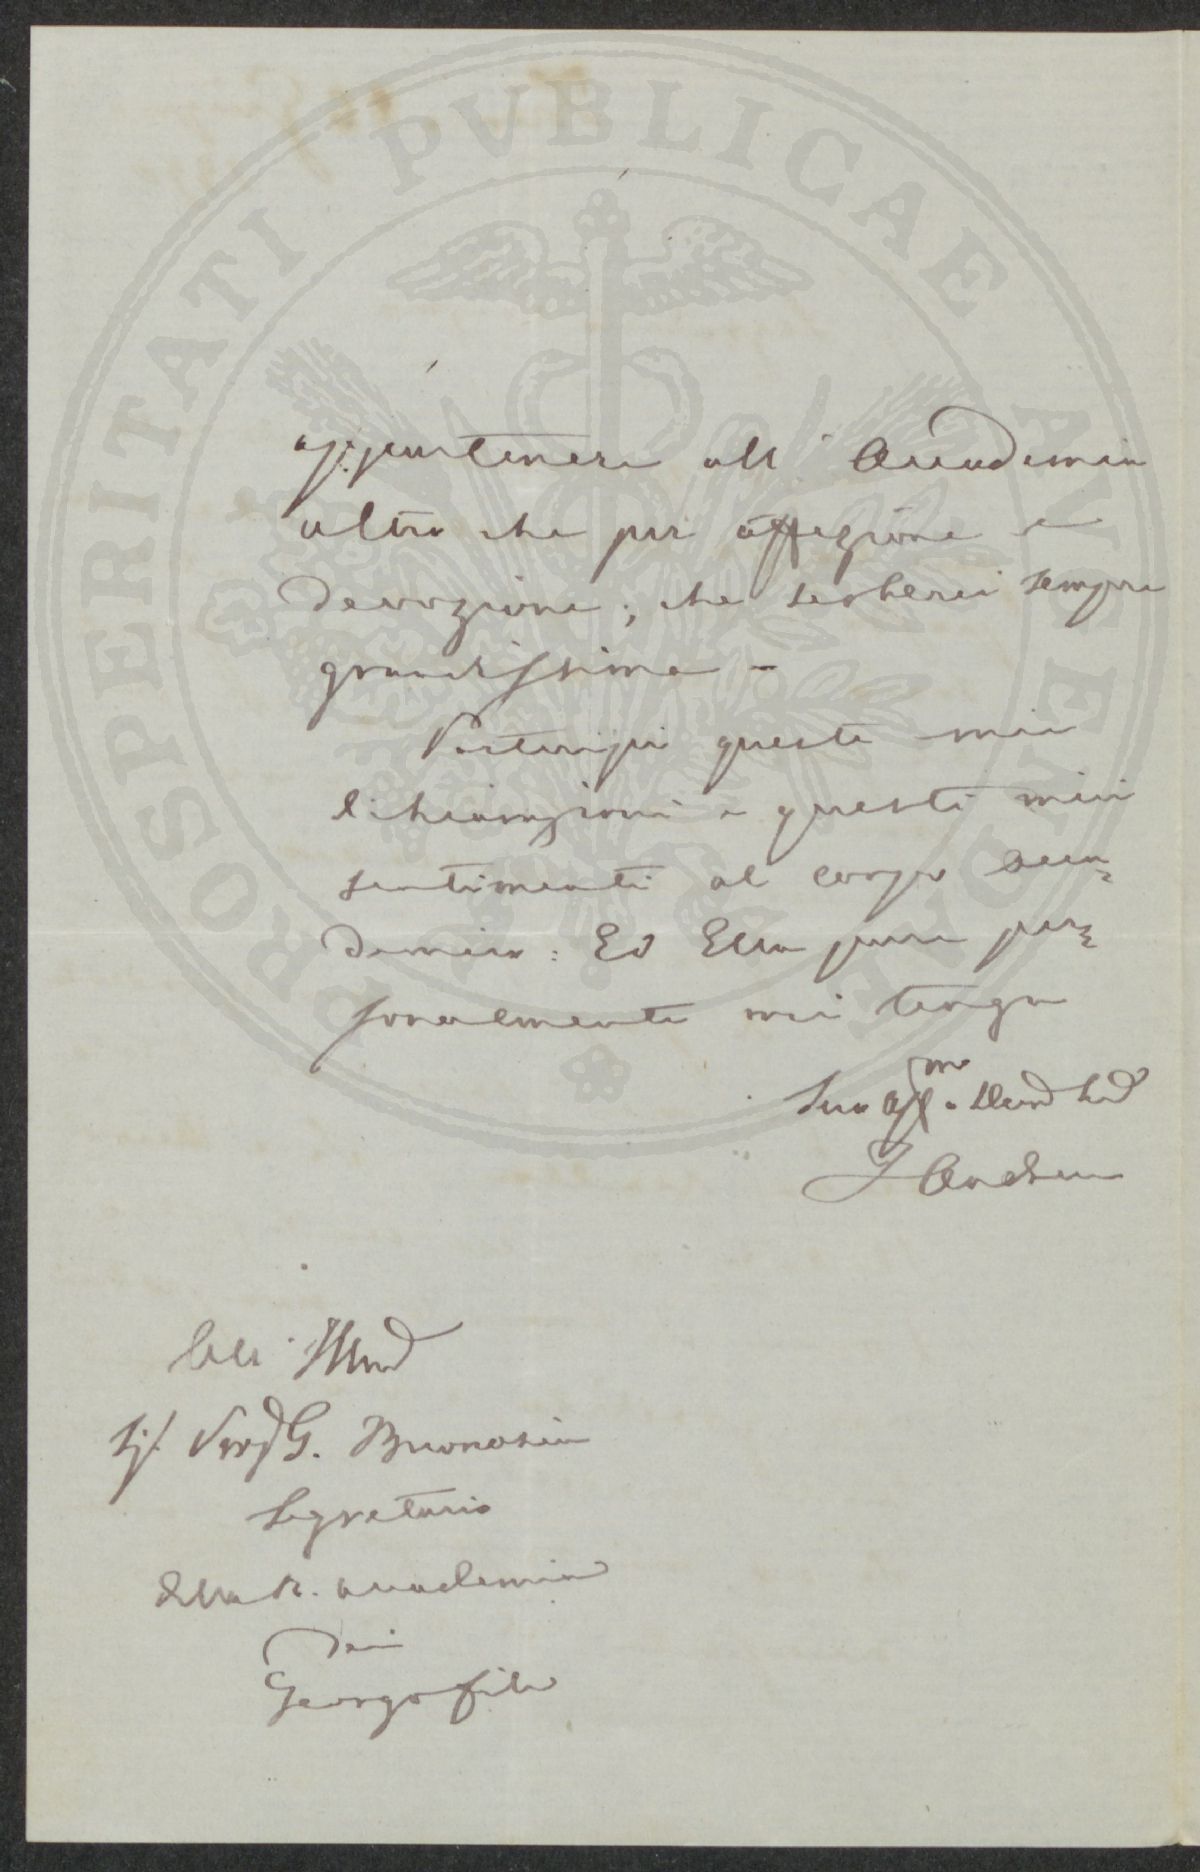 PROSPERITATI PUBLICAE AUGENDAE
appartenere all' Accademia
altro che per affezione e
devozione; che serberei sempre
grandissima -
Partecipi queste mie
dichiarazioni e questi miei
sentimenti al corpo acca=
demico: Ed Ella pure per=
sonalmente mi tenga
Suo aff.mo
All' Illmo
Sig. G. Buonarini
Segretario
della R. Accademia
dei
Georgofili